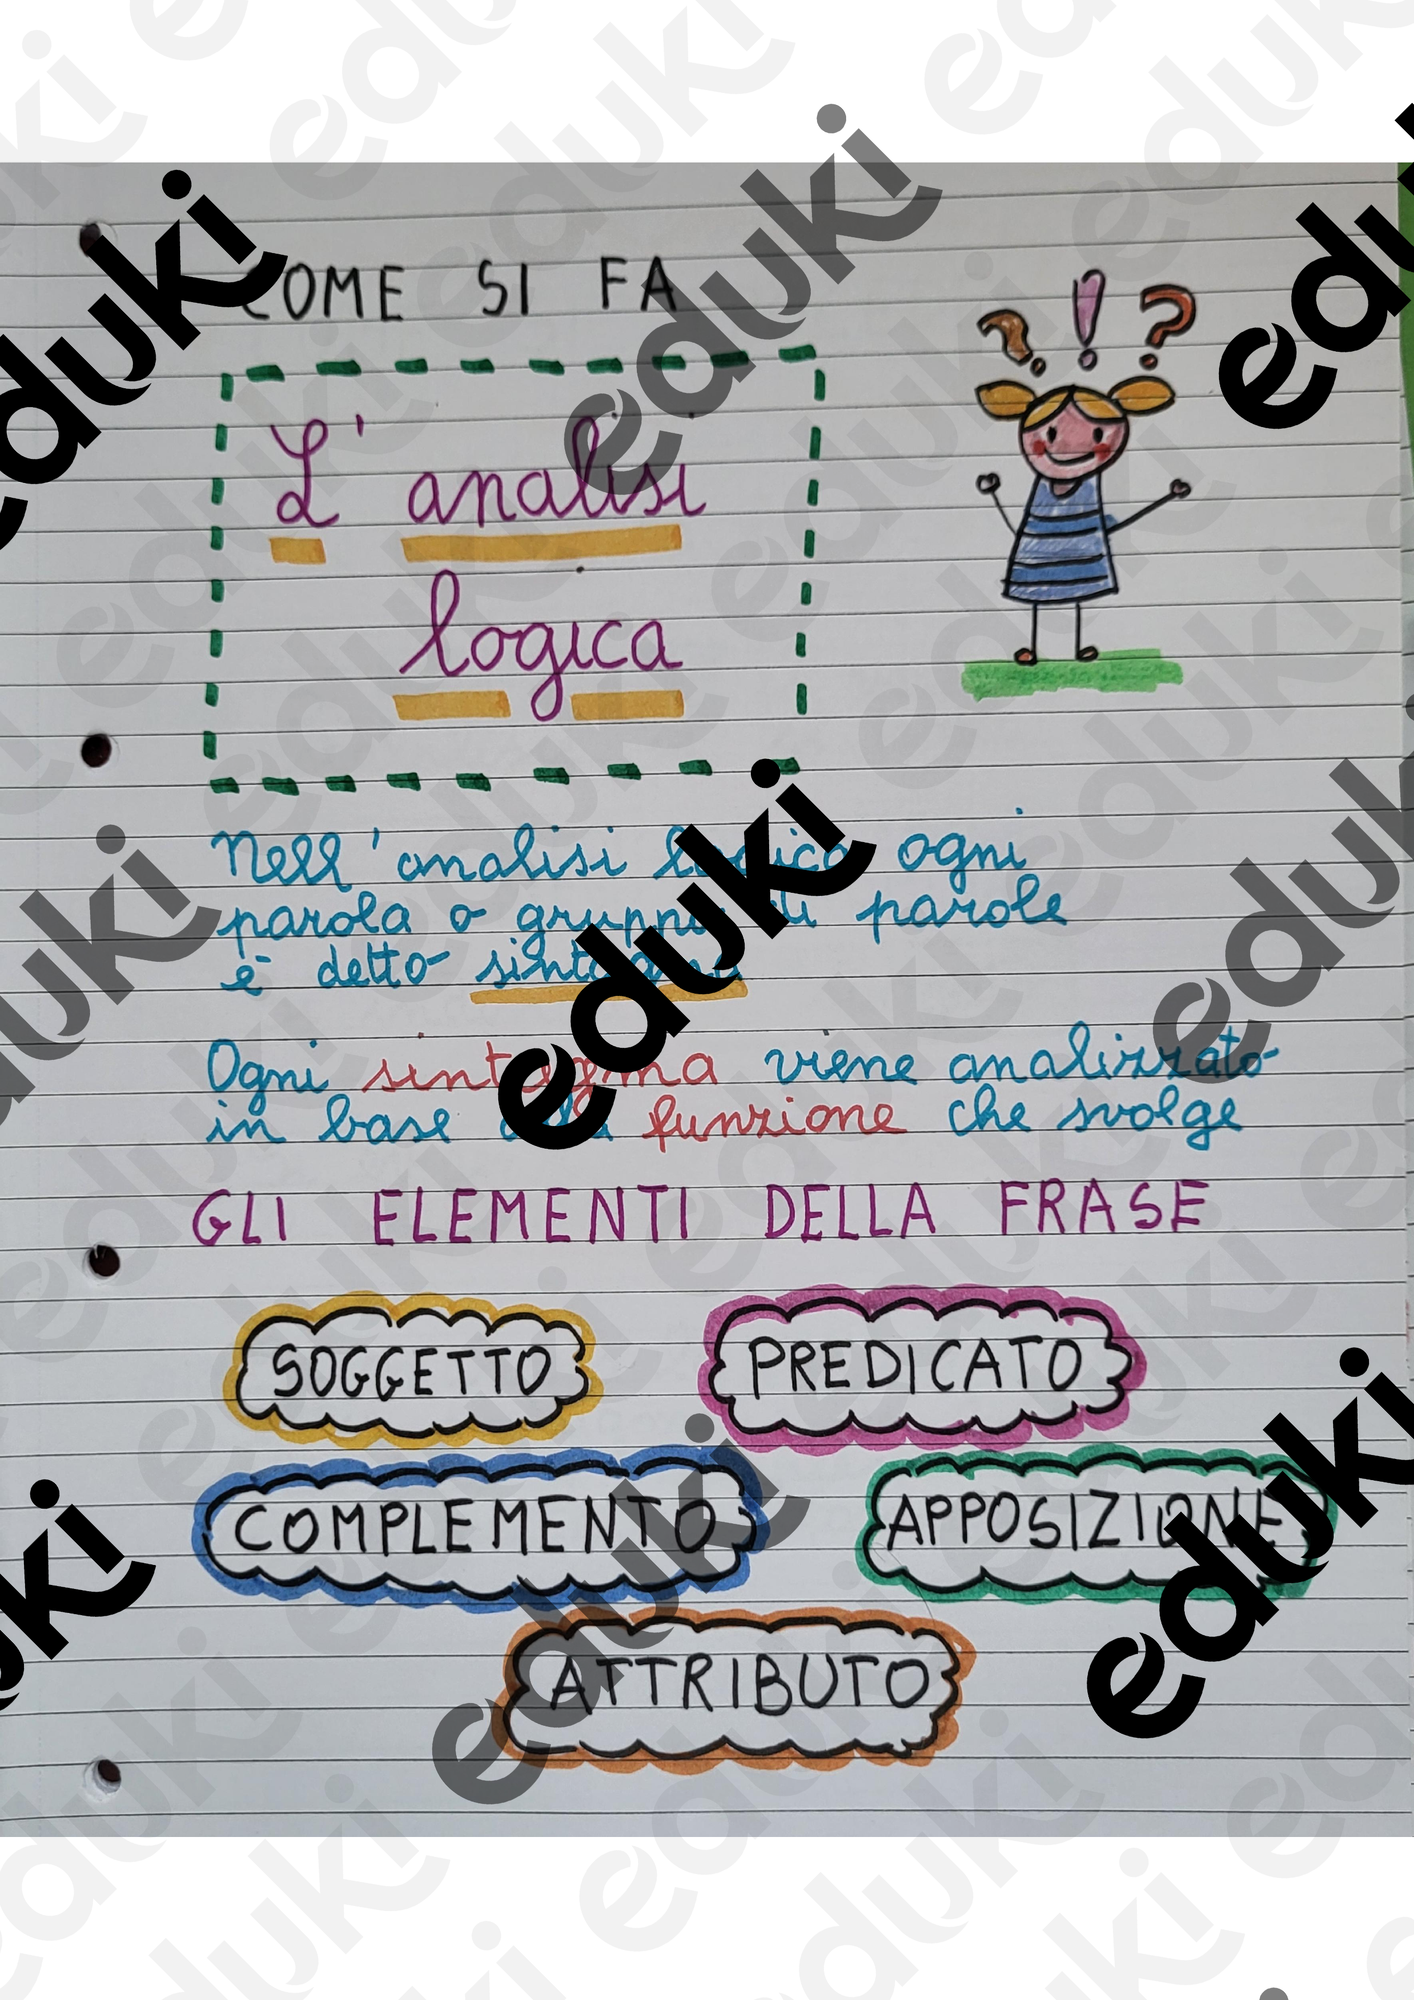 COME SI FA
L'analisi
logica
Nell'analisi logica ogni
parola o gruppo di parole
è detto sintagma
Ogni sintagma viene analizzato
in base alla funzione che svolge
GLI ELEMENTI DELLA FRASE
SOGGETTO
PREDICATO
COMPLEMENTO
APPOSIZIONE
ATTRIBUTO
eduki
eduki
eduki
eduki
eduki
eduki
eduki
eduki
eduki